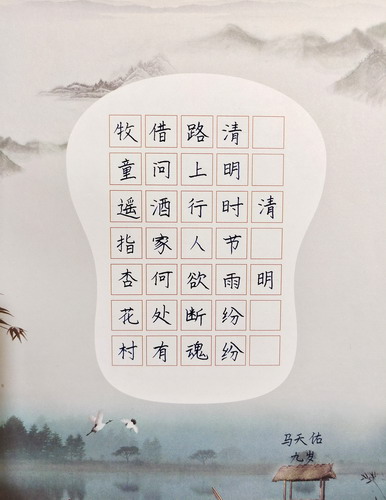 清明
清明时节雨纷纷
路上行人欲断魂
借问酒家何处有
牧童遥指杏花村
马天佑
九岁